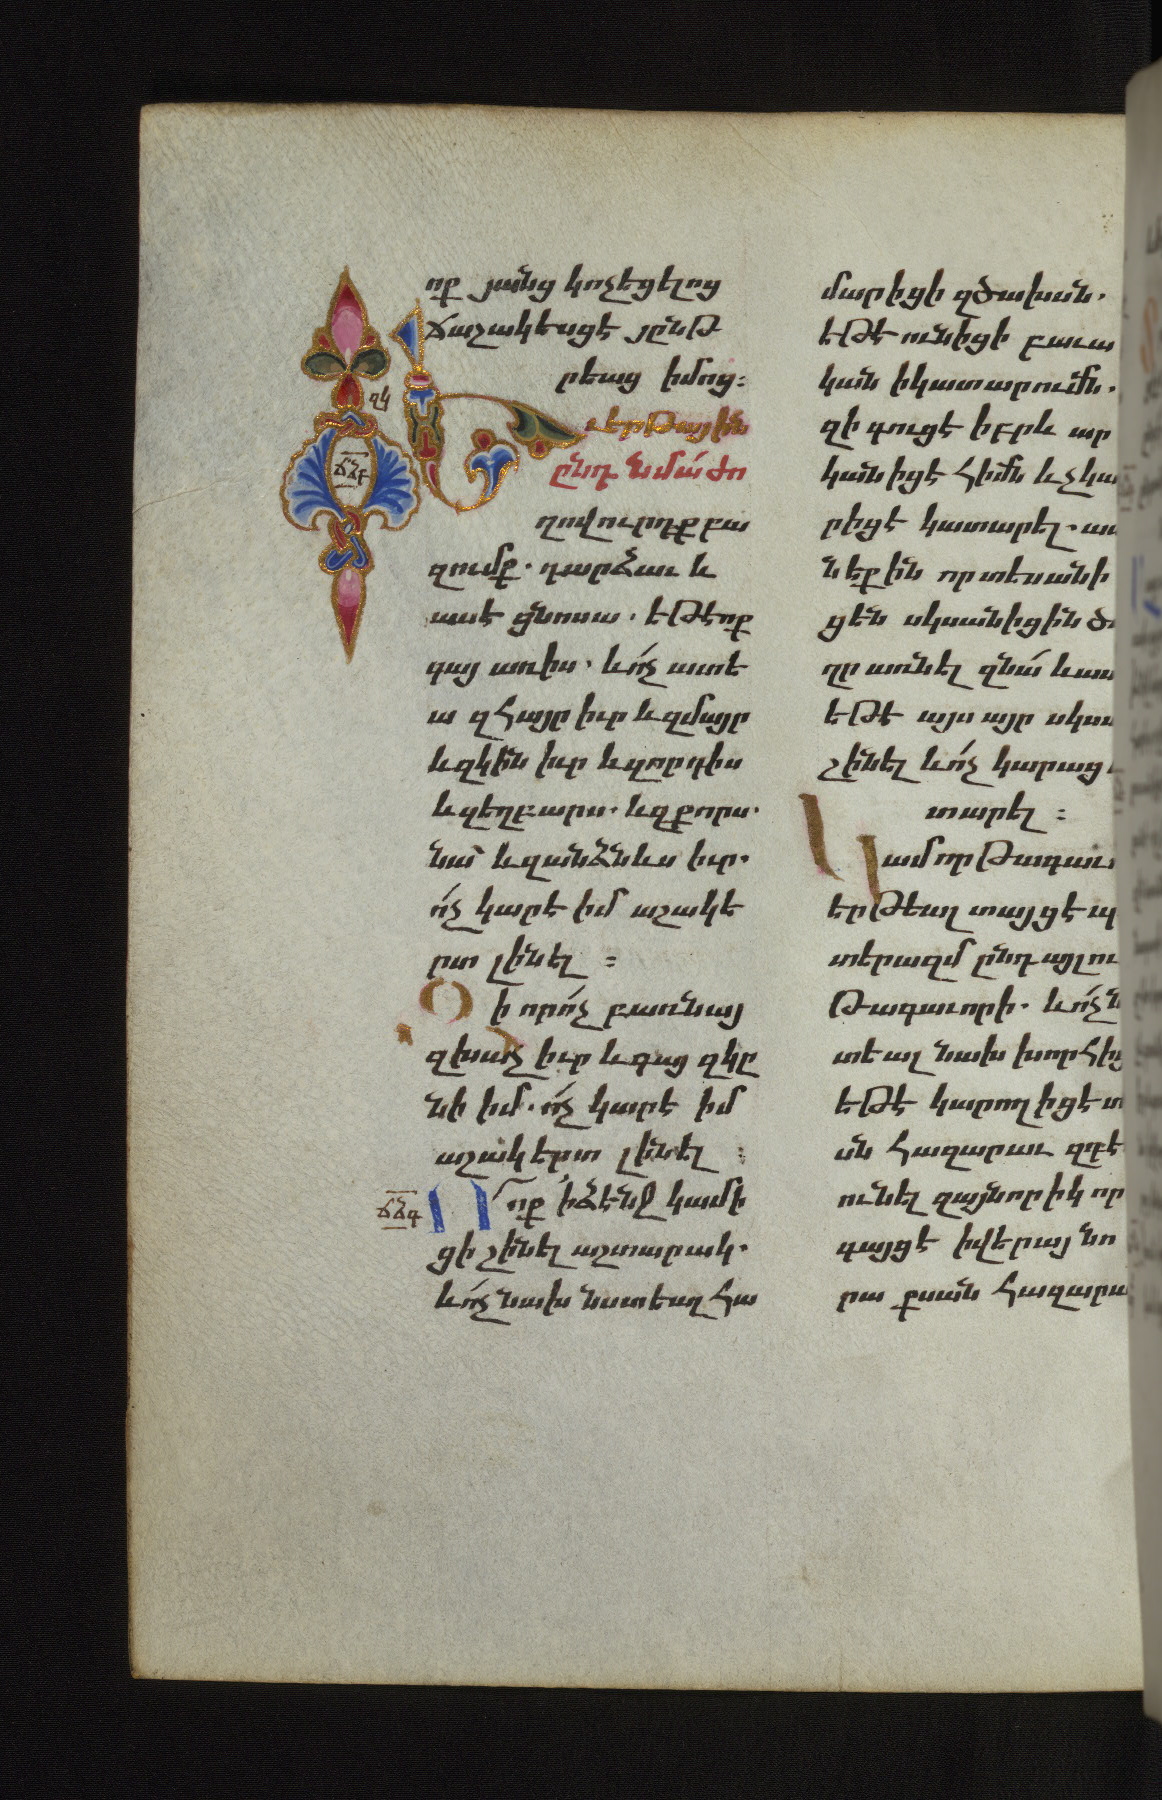 ոք յայնց կոչեցելոց
ճաշակեսցէ յընթ
րեաց իմոց։
զկ
Եւ երթային
ընդ նմա ժո
ճձբ
ղովուրդք բա
զումք. դարձաւ և
ասէ ցնոսա. եթէ ոք
գայ առ իս. և ոչ ատե
ա զհայր իւր և զմայր
և զկին իւր և զորդիս
և զեղբարս. և զքորս.
նամ և զանձն ևս իւր.
ոչ կարէ իմ աշակե
րտ լինել ։
Զի որ ոչ բառնայ
զխաչ իւր և գայ զկը
նի իմ. ոչ կարէ իմ
աշակերտ լինել ։
ճձգ
Ո ոք ի ձէնջ կամի
ցի շինել աշտարակ.
և ոչ նախ նստեալ հա
մարիցի զծախսն.
եթէ ունիցի բաւա
կան ի կատարումն.
զի գուցէ իբրև ար
կանիցէ հիմն և չկա
րիցէ կատարել. ամ
նեքին որ տեսանի
ցեն սկսանիցին ծ
ղր առնել զնա և ասե
եթէ այս այր սկսա
շինել և ոչ կարաց
տարել ։
Կամ որ թագաւ
երթեալ տայցէ պ
տերազմ ընդ այլու
թագաւորի. և ոչ ն
տեալ նախ խորհից
եթէ կարող իցէ տ
սն հազարաւ զդէ
ունել զայնորիկ որ
գայցէ ի վերայ նո
րա քսան հազարա